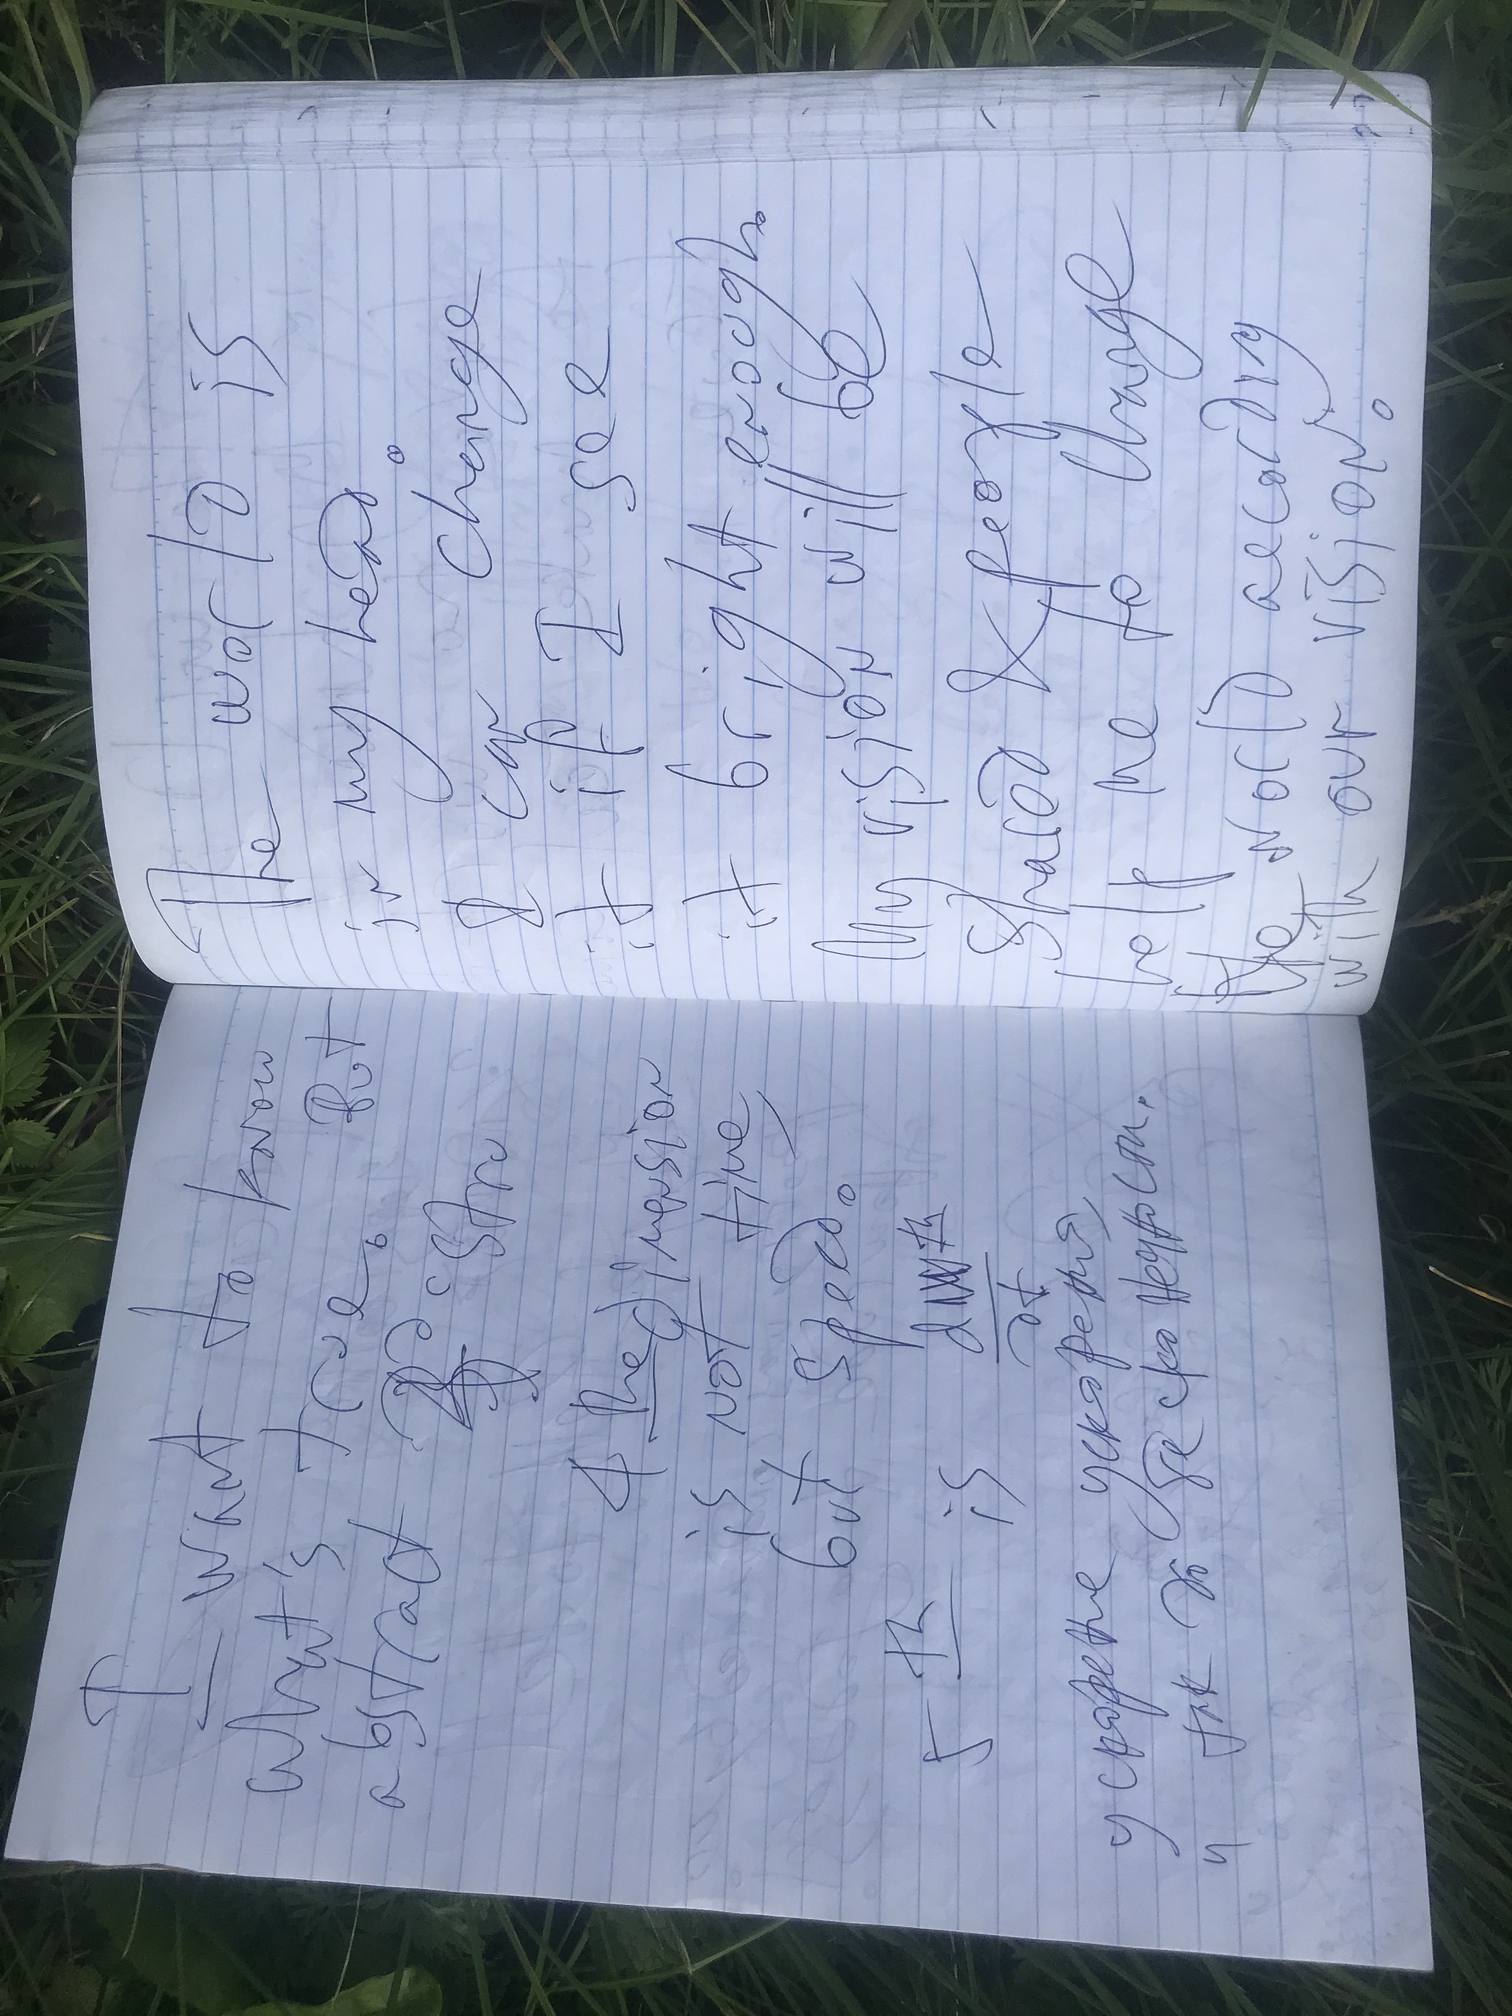 I want to know
what's true. But
abstract
4 the dimension
is not time
but speed.
5 th is
dt
ускорение ускорения
и так до бесконечности.
The world is
in my head.
I can change
it if I see
it bright enough.
My vision will be
Shared & people
help me to change
the world according
with our vision.